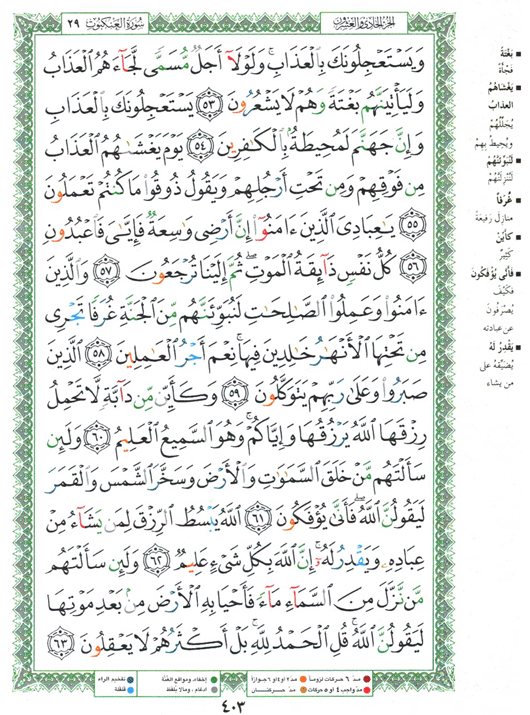 الجزء الحادي والعشرون
سورة العنكبوت ٢٩
وَيَسْتَعْجِلُونَكَ بِالْعَذَابِ ۚ وَلَوْلَا أَجَلٌ مُّسَمًّى لَّجَاءَهُمُ الْعَذَابُ
وَلَيَأْتِيَنَّهُم بَغْتَةً وَهُمْ لَا يَشْعُرُونَ ٥٣ يَسْتَعْجِلُونَكَ بِالْعَذَابِ
وَإِنَّ جَهَنَّمَ لَمُحِيطَةٌ بِالْكَافِرِينَ ٥٤ يَوْمَ يَغْشَاهُمُ الْعَذَابُ
مِن فَوْقِهِمْ وَمِن تَحْتِ أَرْجُلِهِمْ وَيَقُولُ ذُوقُوا مَا كُنتُمْ تَعْمَلُونَ
٥٥ يَا عِبَادِيَ الَّذِينَ ءَامَنُوا إِنَّ أَرْضِي وَاسِعَةٌ فَإِيَّايَ فَاعْبُدُونِ
٥٦ كُلُّ نَفْسٍ ذَائِقَةُ الْمَوْتِ ۖ ثُمَّ إِلَيْنَا تُرْجَعُونَ ٥٧ وَالَّذِينَ
ءَامَنُوا وَعَمِلُوا الصَّالِحَاتِ لَنُبَوِّئَنَّهُم مِّنَ الْجَنَّةِ غُرَفًا تَجْرِي
مِن تَحْتِهَا الْأَنْهَارُ خَالِدِينَ فِيهَا ۚ نِعْمَ أَجْرُ الْعَامِلِينَ ٥٨ الَّذِينَ
صَبَرُوا وَعَلَىٰ رَبِّهِمْ يَتَوَكَّلُونَ ٥٩ وَكَأَيِّن مِّن دَابَّةٍ لَّا تَحْمِلُ
رِزْقَهَا اللَّهُ يَرْزُقُهَا وَإِيَّاكُمْ ۚ وَهُوَ السَّمِيعُ الْعَلِيمُ ٦٠ وَلَئِن
سَأَلْتَهُم مَّنْ خَلَقَ السَّمَاوَاتِ وَالْأَرْضَ وَسَخَّرَ الشَّمْسَ وَالْقَمَرَ
لَيَقُولُنَّ اللَّهُ ۖ فَأَنَّىٰ يُؤْفَكُونَ ٦١ اللَّهُ يَبْسُطُ الرِّزْقَ لِمَن يَشَاءُ مِنْ
عِبَادِهِ وَيَقْدِرُ لَهُ ۚ إِنَّ اللَّهَ بِكُلِّ شَيْءٍ عَلِيمٌ ٦٢ وَلَئِن سَأَلْتَهُم
مَّن نَّزَّلَ مِنَ السَّمَاءِ مَاءً فَأَحْيَا بِهِ الْأَرْضَ مِن بَعْدِ مَوْتِهَا
لَيَقُولُنَّ اللَّهُ ۚ قُلِ الْحَمْدُ لِلَّهِ ۚ بَلْ أَكْثَرُهُمْ لَا يَعْقِلُونَ ٦٣
بَغْتَةً
فجأة
يغشاهم
العذاب
يجللهم
ويحيط بهم
لنبوئنهم
لننزلنهم
غرفا
منازل رفيعة
كأين
كثير
فأنى يؤفكون
فكيف
يصرفون
عن عبادته
يقدر له
يضيقه على
من يشاء
مدّ ٦ حركات لزوماً مدّ ٢ أو ٤ أو ٦ جوازاً
مدّ واجب ٤ أو ٥ حركات مدّ حركتان
إخفاء، ومواقع الغنّة
إدغام، وما لا يلفظ
تفخيم الراء
قلقلة
٤٠٣